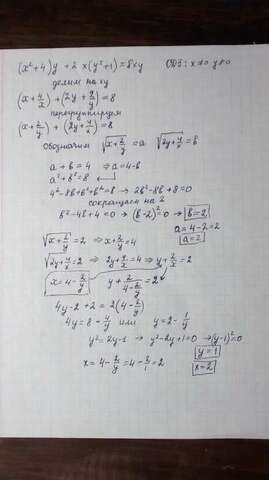 (x²+4)y + 2x(y²+1) = 8xy ОДЗ: x≠0 y≠0
делим на xy
(x + 4/x) + (2y + 2/y) = 8
перегруппируем
(x + 2/y) + (2y + 4/x) = 8
Обозначим √(x + 2/y) = a √(2y + 4/x) = b
a + b = 4 ⇒ a = 4-b
a² + b² = 8
4² - 8b + b² + b² = 8 → 2b² - 8b + 8 = 0
сокращаем на 2
b² - 4b + 4 = 0 → (b-2)² = 0 → b = 2
a = 4-2 = 2
a = 2
√(x + 2/y) = 2 ⇒ x + 2/y = 4
√(2y + 4/x) = 2 ⇒ 2y + 4/x = 4 ⇒ y + 2/x = 2
x = 4 - 2/y y + 2/(4 - 2/y) = 2
4y - 2 + 2 = 2(4 - 2/y)
4y = 8 - 4/y или y = 2 - 1/y
y² = 2y - 1 → y² - 2y + 1 = 0 → (y-1)² = 0
y = 1
x = 4 - 2/y = 4 - 2/1 = 2 x = 2